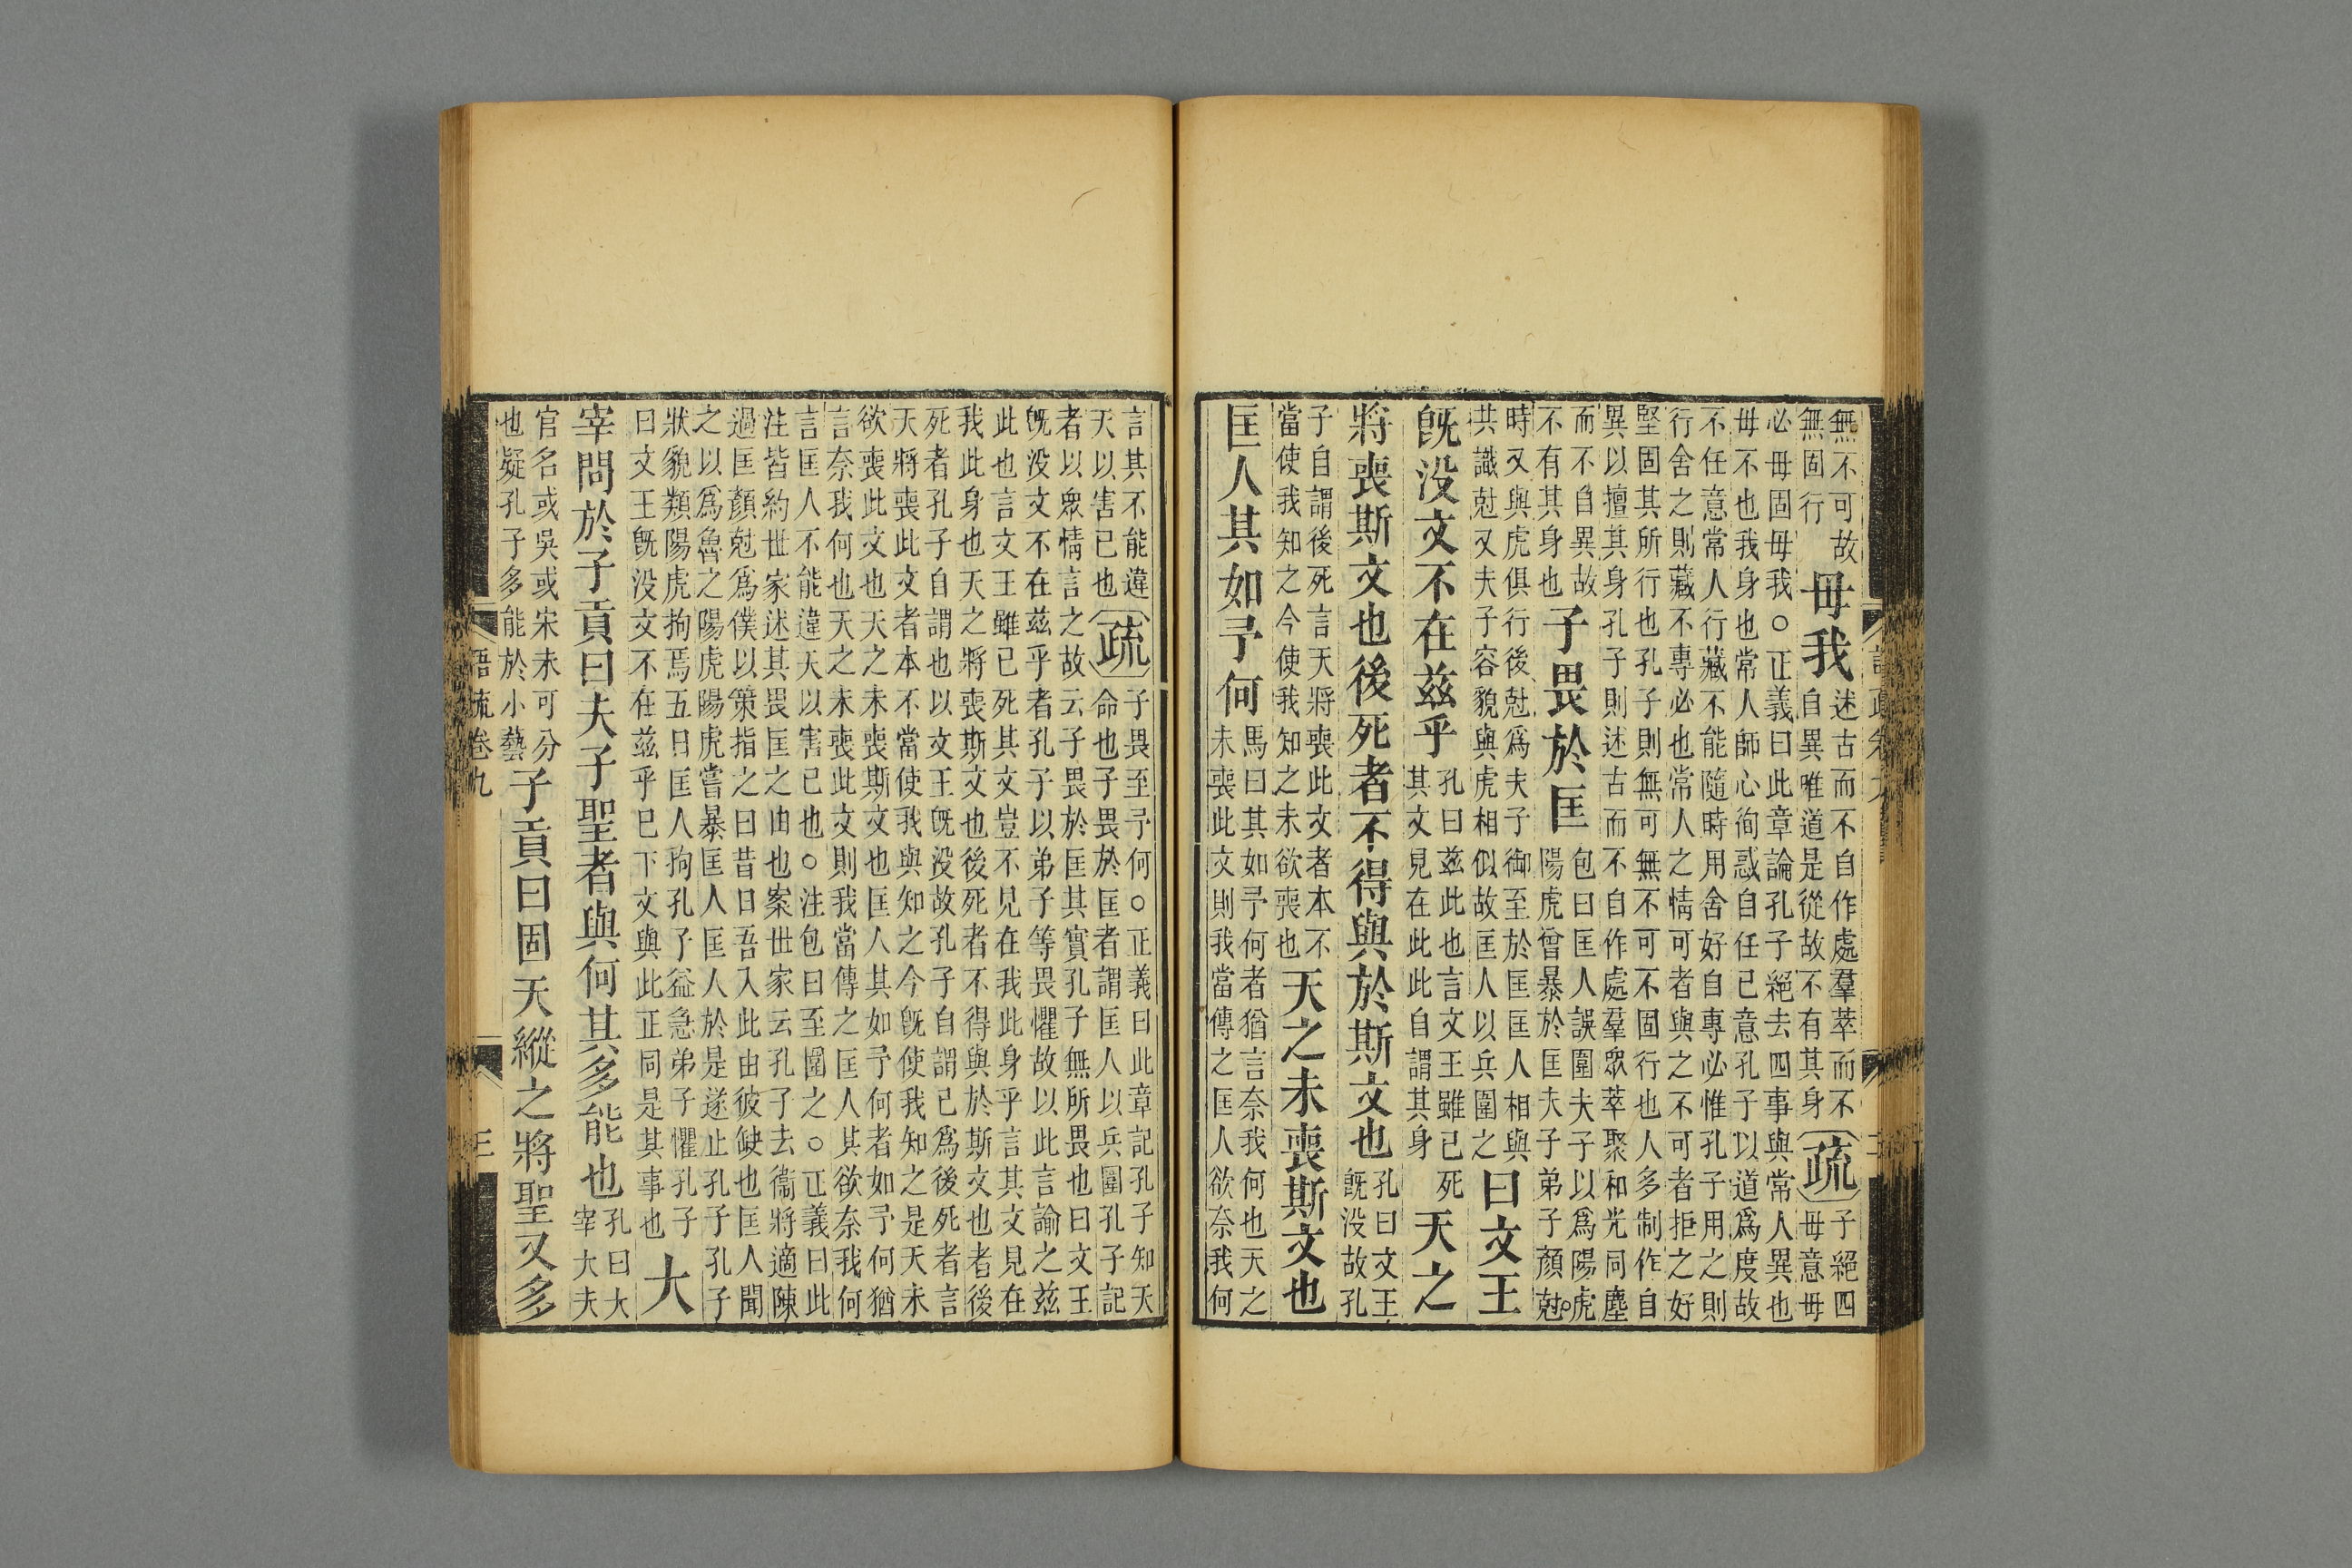 無不可故無固行毋我述古而不自作處羣萃而不自異唯道是從故不有其身疏子絕四毋意毋
必毋固毋我○正義曰此章論孔子絕去四事與常人異也
毋不也我身也常人師心徇惑自任已意孔子以道爲度故
不任意常人行藏不能隨時用舍好自專必惟孔子用之則
行舍之則藏不專必也常人之情可者與之不可者拒之好
堅固其所行也孔子則無可無不可不固行也人多制作自
異以擅其身孔子則述古而不自作處羣眾萃聚和光同塵
而不自異故不有其身也子畏於匡包曰匡人誤圍夫子以爲陽虎陽虎曾暴於匡夫子弟子顏尅
時又與虎俱行後尅爲夫子御至於匡匡人相與共識尅又夫子容貌與虎相似故匡人以兵圍之曰文王
旣没文不在兹乎孔曰兹此也言文王雖已死其文見在此此自謂其身天之
將喪斯文也後死者不得與於斯文也孔曰文王旣没故孔
子自謂後死言天將喪此文者本不當使我知之今使我知之未欲喪也天之未喪斯文也
匡人其如予何馬曰其如予何者猶言奈我何也天之未喪此文則我當傳之匡人欲奈我何
言其不能違天以害已也疏子畏至予何○正義曰此章記孔子知天命也子畏於匡者謂匡人以兵圍孔子記
者以眾情言之故云子畏於匡其實孔子無所畏也曰文王
旣没文不在兹乎者孔子以弟子等畏懼故以此言諭之兹
此也言文王雖已死其文豈不見在我此身乎言其文見在
我此身也天之將喪斯文也後死者不得與於斯文也者後
死者孔子自謂也以文王旣没故孔子自謂已爲後死者言
天將喪此文者本不當使我與知之今旣使我知之是天未
欲喪此文也天之未喪斯文也匡人其如予何者如予何猶
言奈我何也天之未喪此文則我當傳之匡人其欲奈我何
言匡人不能違天以害已也○注包曰至圍之○正義曰此
注皆約世家述其畏匡之由也案世家云孔子去衞將適陳
過匡顏尅爲僕以策指之曰昔日吾入此由彼缺也匡人聞
之以爲魯之陽虎陽虎嘗暴匡人匡人於是遂止孔子孔子
狀貌類陽虎拘焉五日匡人拘孔子益急弟子懼孔子
曰文王旣没文不在兹乎已下文與此正同是其事也大
宰問於子貢曰夫子聖者與何其多能也孔曰大宰大夫
官名或吳或宋未可分也疑孔子多能於小藝子貢曰固天縱之將聖又多
語疏卷九 三